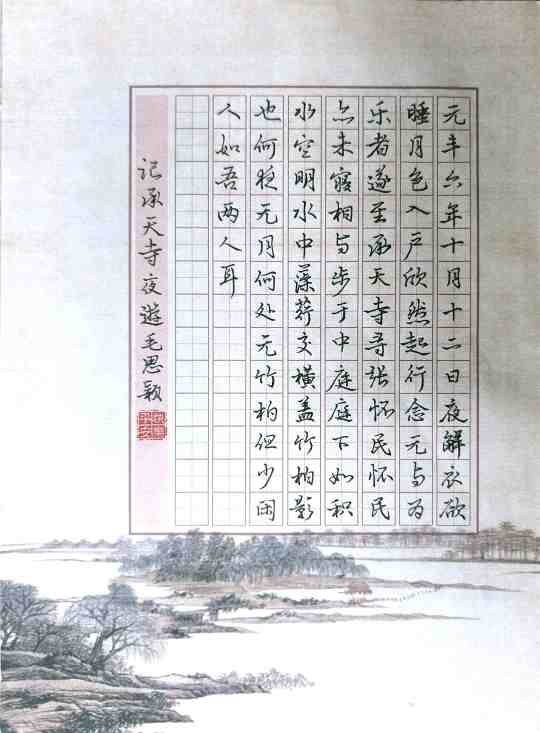 元丰六年十月十二日夜解衣欲
睡月色入户欣然起行念无与为
乐者遂至承天寺寻张怀民怀民
亦未寝相与步于中庭庭下如积
水空明水中藻荇交横盖竹柏影
也何夜无月何处无竹柏但少闲
人如吾两人耳
记承天寺夜游毛思颖